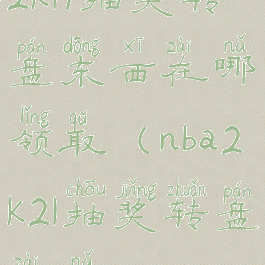 2k17抽奖转
pán dōng xī zài nǎ
盘东西在哪
lǐng qǔ
领取（nba2
chōu jiǎng zhuǎn pán
k21抽奖转盘
zài nǎ